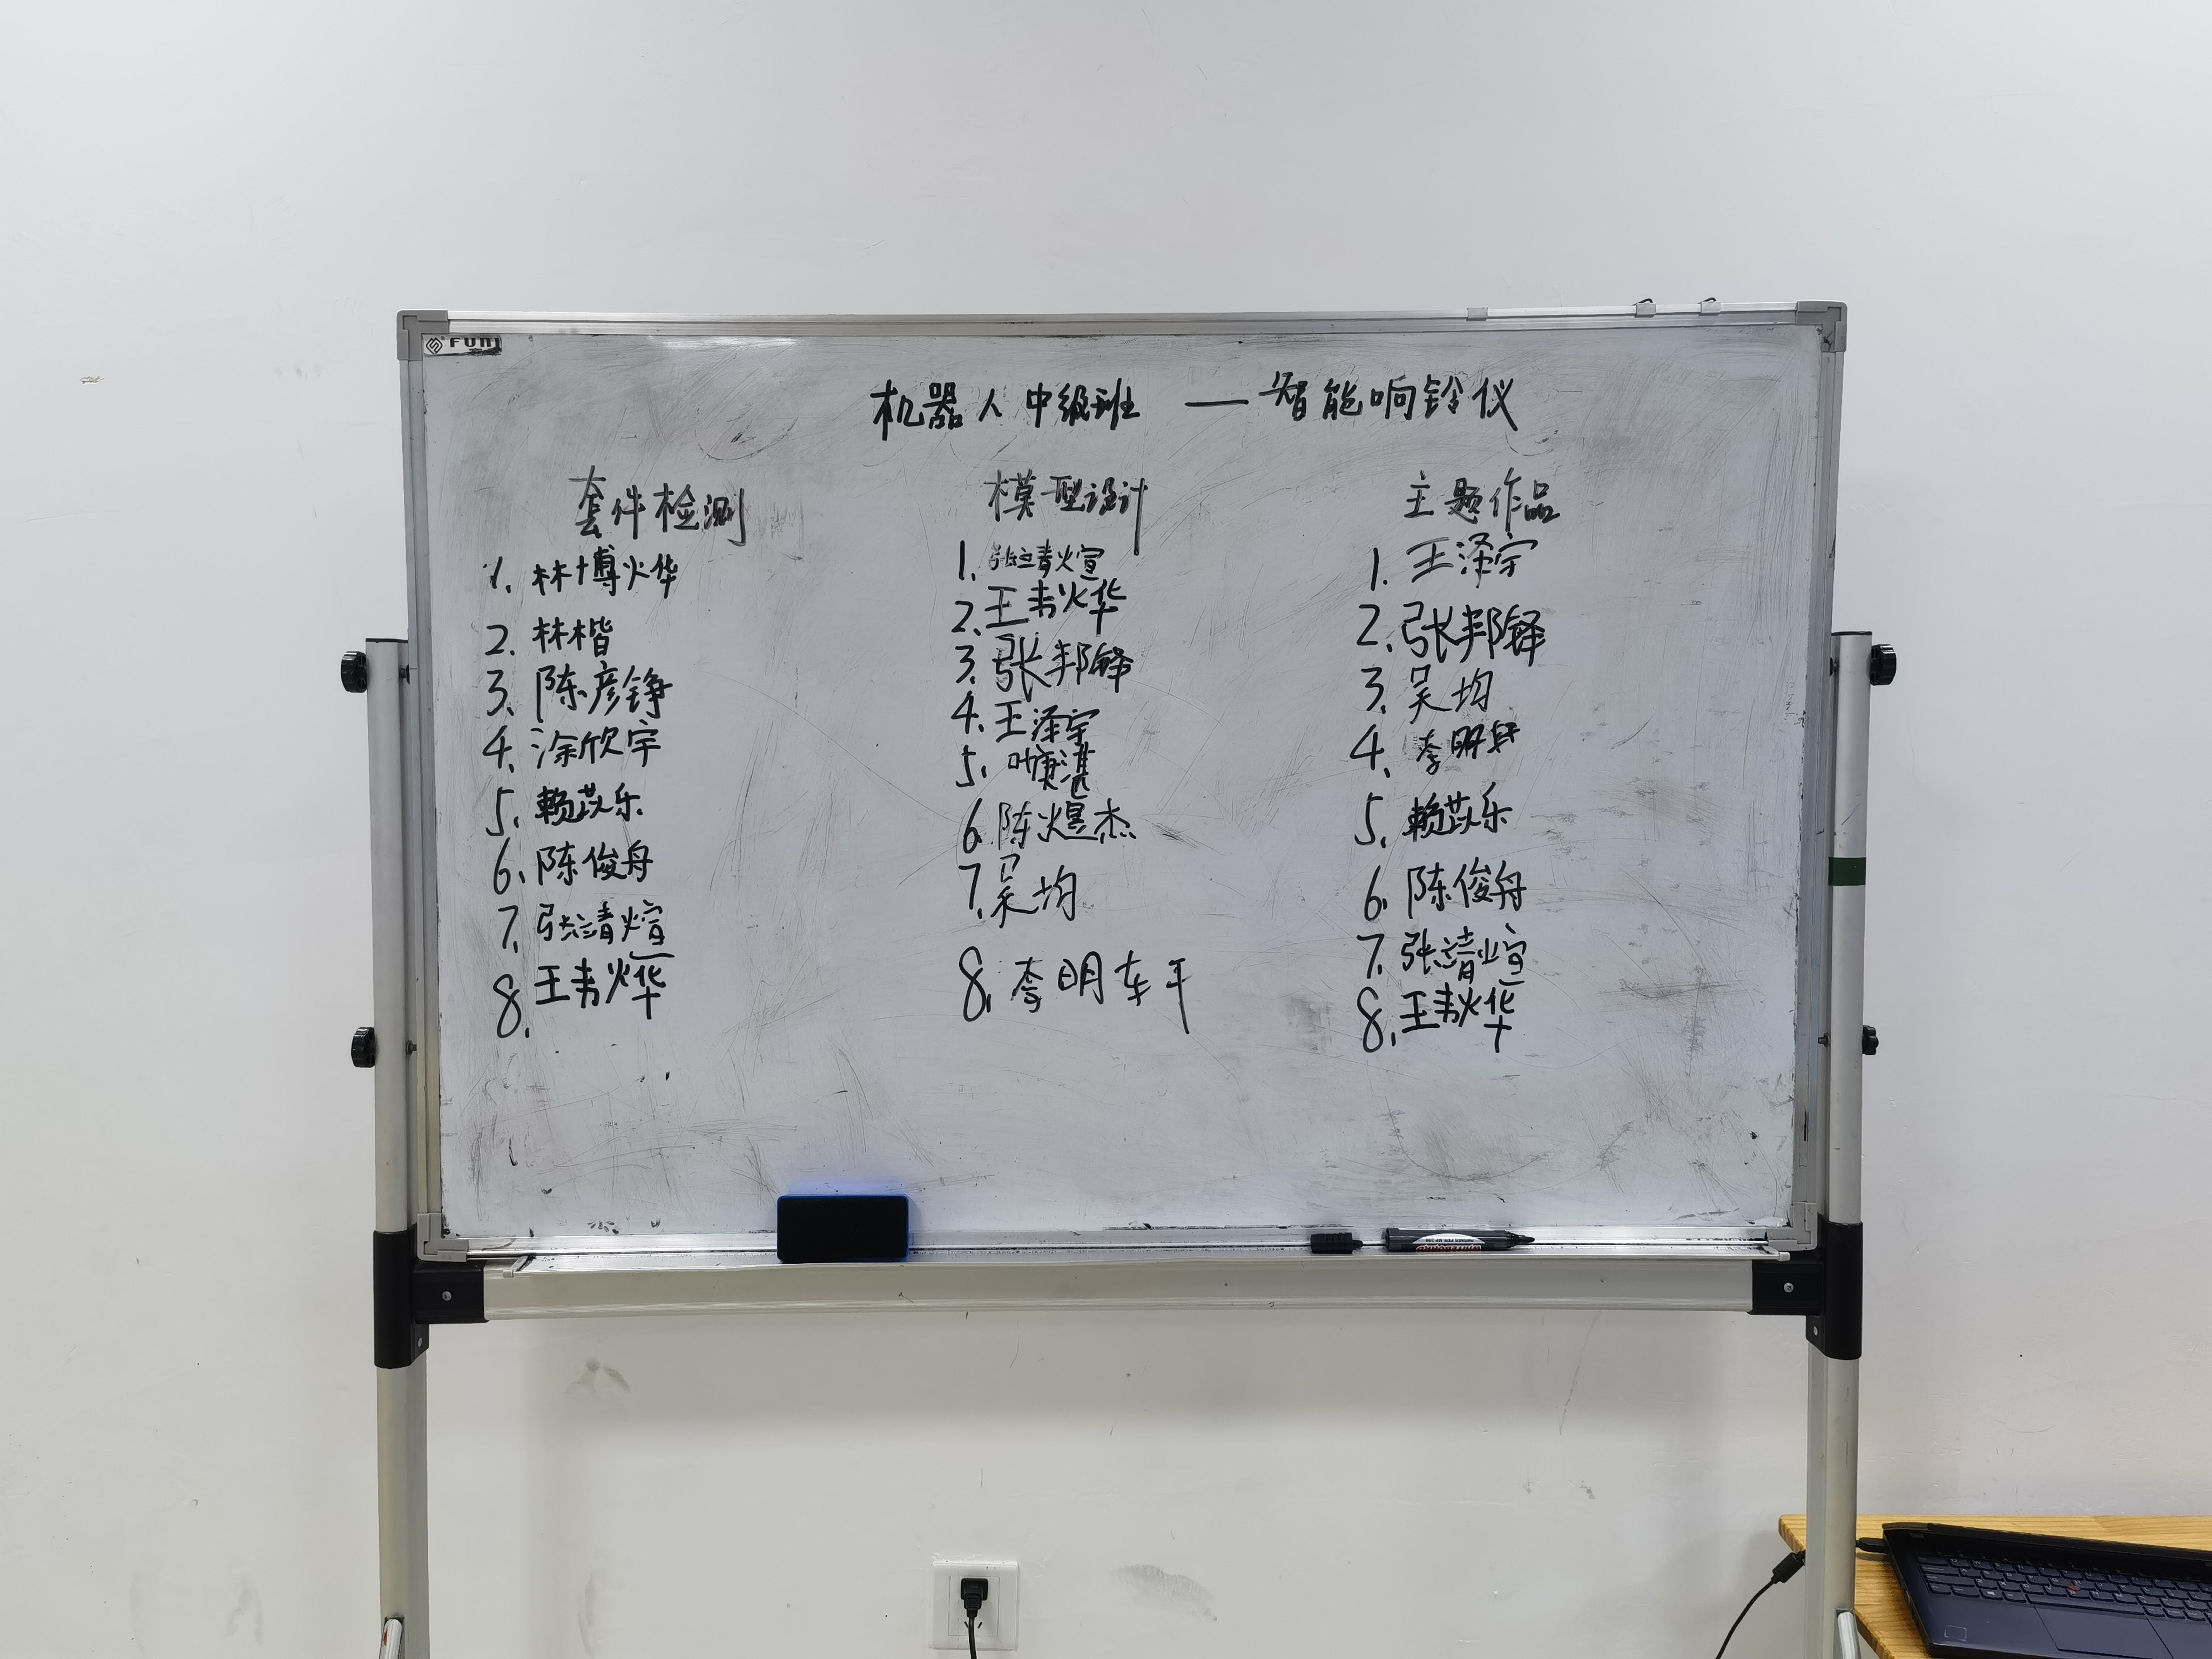 机器人中级班 — 智能响铃仪
套件检测
1. 林博烨
2. 林楷
3. 陈彦铮
4. 涂欣宇
5. 赖苡乐
6. 陈俊舟
7. 张清煊
8. 王韦烨
模型设计
1. 张清煊
2. 王韦烨
3. 张邦铎
4. 王泽宇
5.
6. 陈煜杰
7. 吴均
8. 李明轩
主题作品
1. 王泽宇
2. 张邦铎
3. 吴均
4. 李明轩
5. 赖苡乐
6. 陈俊舟
7. 张清煊
8. 王韦烨